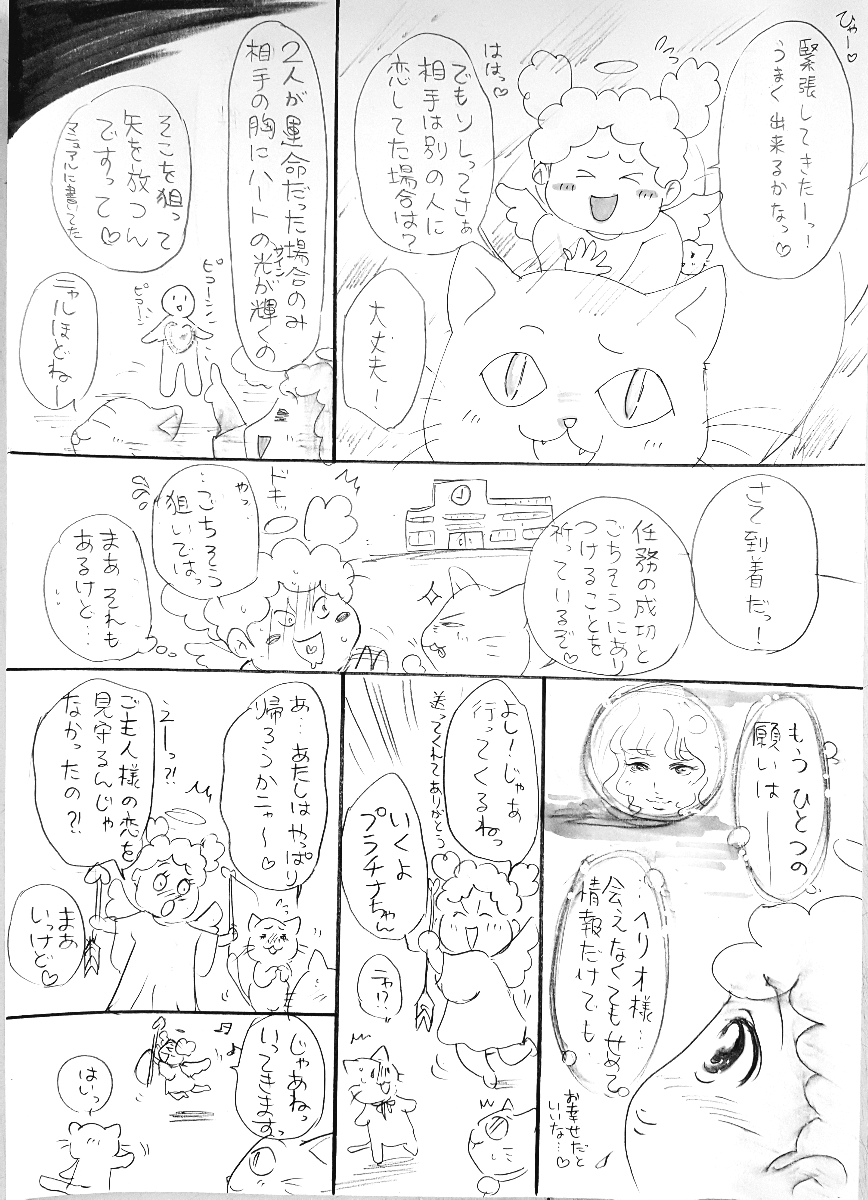 ひゃー♡
緊張してきたーっ!
うまく出来るかなっ♡
ははっ♡
でもソレってさぁ
相手は別の人に
恋してた場合は?
大丈夫!
2人が運命だった場合のみ
相手の胸にハートの光が輝くの
サイン
そこを狙って
矢を放つん
ですって♡
マニュアルに書いてた
ピョーン
ピョーン
ニャルほどねー
さて到着だっ!
任務の成功と
ごちそうにあり
つけることを
祈っているぞ♡
ドキッ
やっ
…ごちそう
狙いではっ
まあそれも
あるけど…
もうひとつの
願いは──
…ヘリオ様…
会えなくてもせめて。
情報だけでも…
お幸せだと
いいな…♡
よし!じゃあ
行ってくるねっ
送ってくれてありがとう
いくよ
プラチナちゃん
ニャ!?
あ…あたしはやっぱり
帰ろうかニャ〜♡
えーっ?!
ご主人様の恋を
見守るんじゃ
なかったの?!
まあ
いっけど♡
じゃあねっ
いってきますっ
はいっ